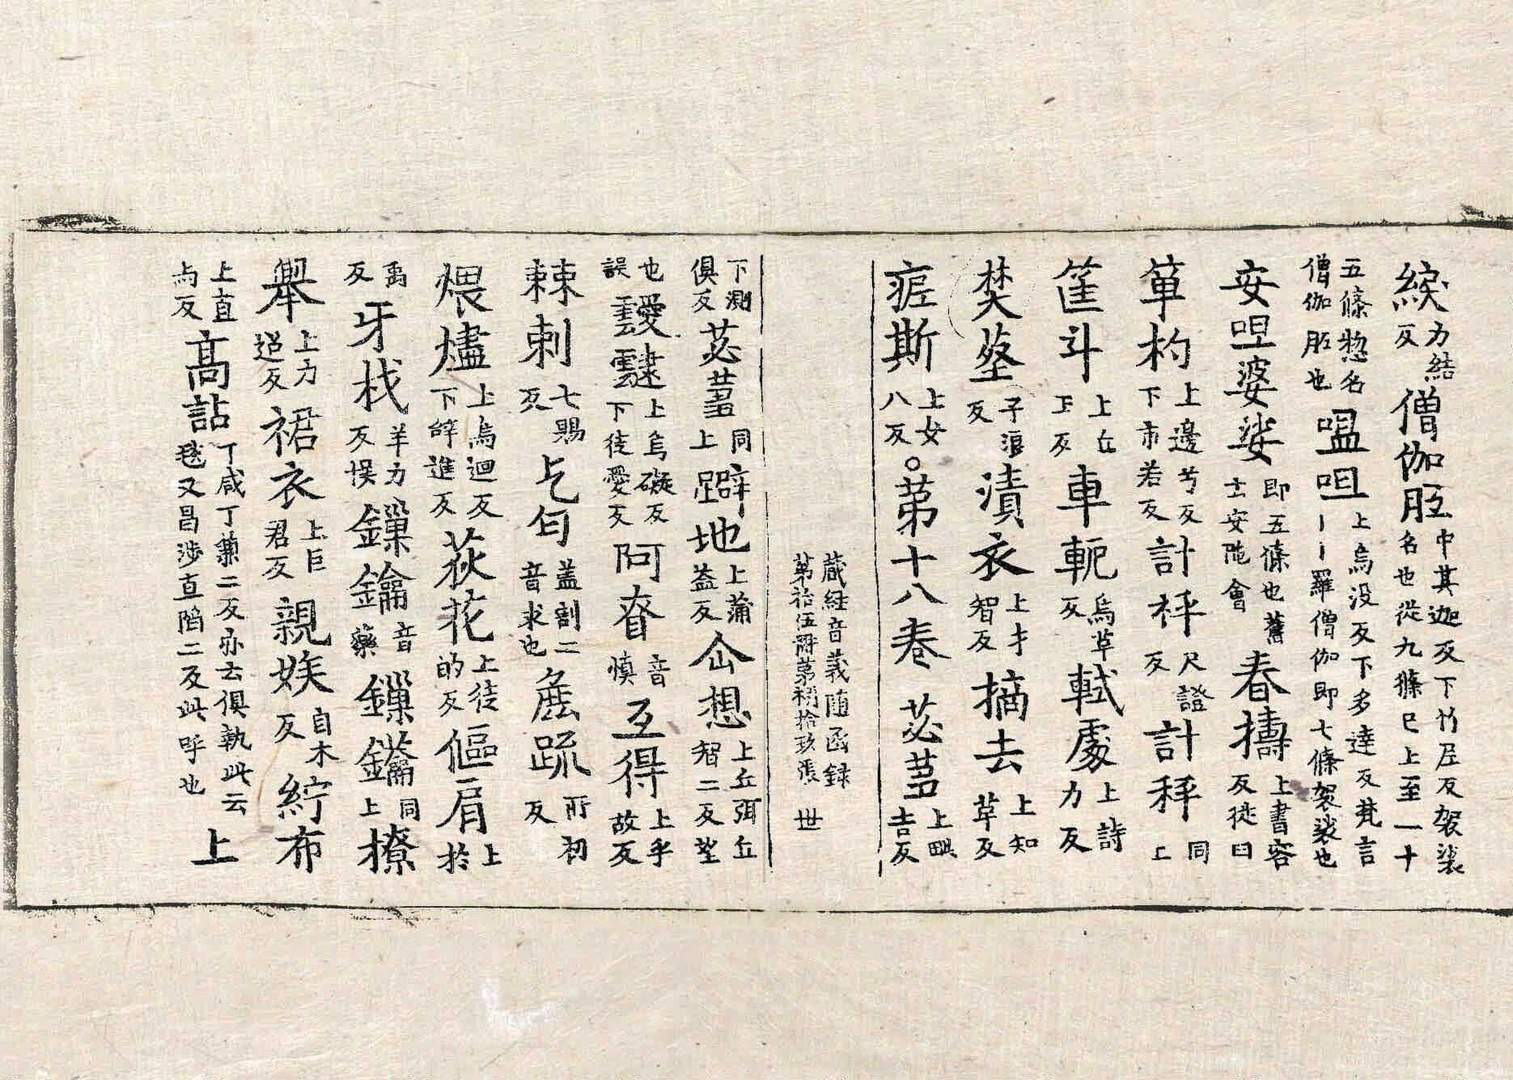 綟力結反僧伽胝中其迦反下竹尼反袈裟名也從九條已上至一十
五條惣名僧伽胝也嗢呾上烏没反下多達反梵言丨丨羅僧伽即七條袈裟也
安呾婆娑即五條也舊云安陁會舂擣上書容反從臼
箪杓上邊兮反下市若反計枰尺證反計秤同上
筐斗上丘下反車軛烏革反軾處上詩力反
㷼子浪反漬衣上才智反摘去上知革反
疟斯上女八反。苐十八卷苾蒭上毗吉反
藏經音義随函録苐拾伍册苐初拾玖張世
下測俱反苾蒭同上躃地上蒲益反企想上丘弭丘智二反望
也誤靉靆上烏礙反下徒愛反阿音慎互得上乎故反
棘刺七賜反乞匃盖割二音求也麁踈所初反
煨燼上烏迴反下辝進反荻花上徒的反傴肩上於
禹反牙栈羊力反悮鏁鑰音藥鏁鑰同上撩
舉上力迢反裙衣上巨君反親自木反紵布
上直吕反高詀丁咸丁兼二反亦去俱執此云毯又昌涉直陷二反此呼也上